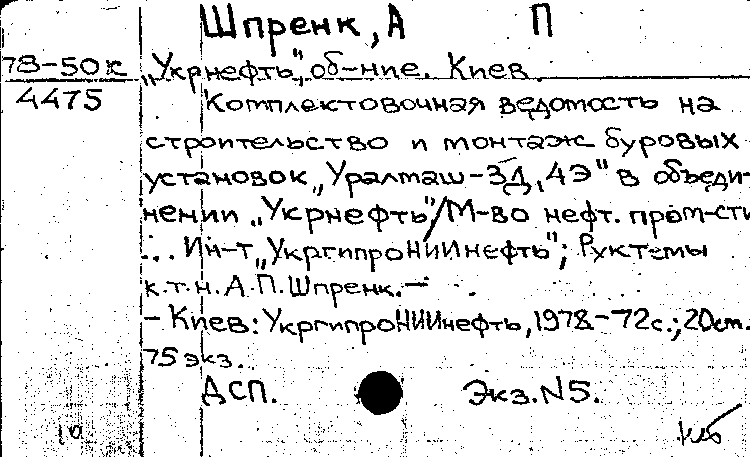 Шпренк, А П
78-50к
"Укрнефть", об-ние. Киев.
4475
Комплектовочная ведомость на
строительство и монтаж буровых
установок „Уралмаш-3Д, 4Э" в объеди-
нении „Укрнефть"/М-во нефт. пром-сти
... Ин-т „УкргипроНИИнефть"; Рук темы
к.т.н. А.П. Шпренк. —
- Киев: УкргипроНИИнефть, 1978.-72с.; 20см.
75 экз.
ДСП. Экз. N5.